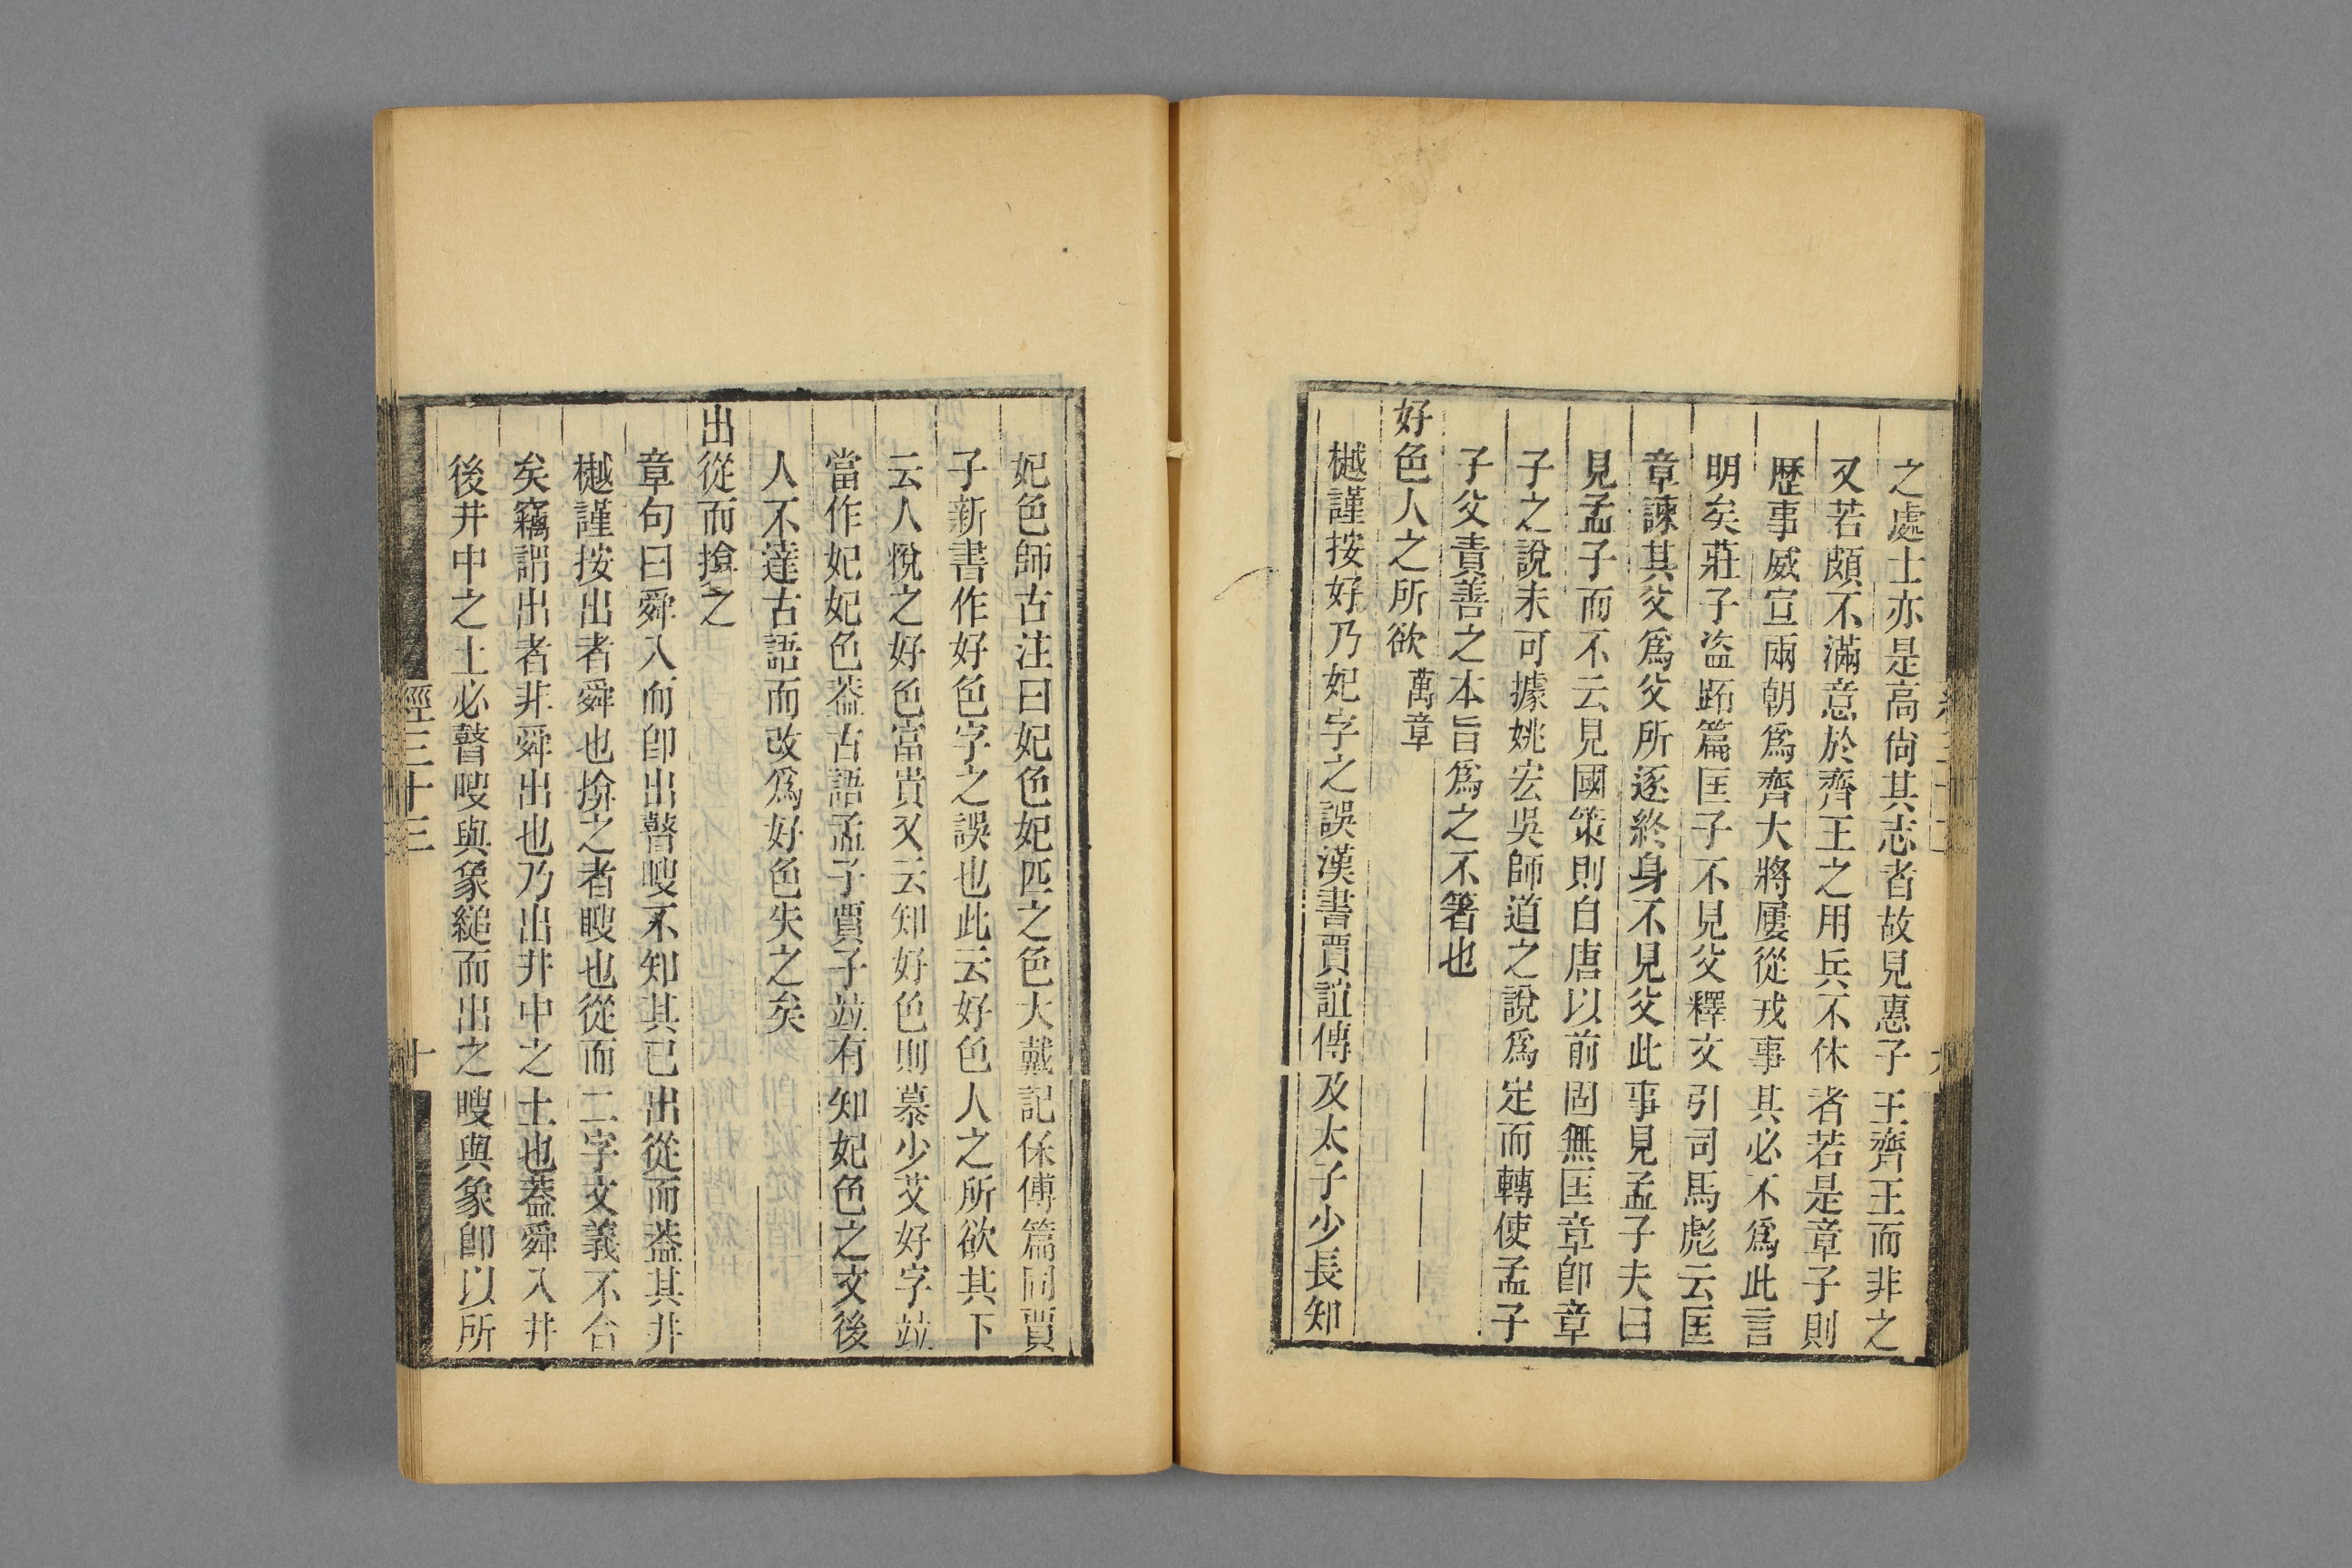 之處士亦是高尙其志者故見惠子王齊王而非之
又若頗不滿意於齊王之用兵不休者若是章子則
歷事威宣兩朝爲齊大將屢從戎事其必不爲此言
明矣莊子盜跖篇匡子不見父釋文引司馬彪云匡
章諫其父爲父所逐終身不見父此事見孟子夫曰
見孟子而不云見國策則自唐以前固無匡章卽章
子之說未可據姚宏吳師道之說爲定而轉使孟子
子父責善之本旨爲之不箸也
好色人之所欲 萬章
樾謹按好乃妃字之誤漢書賈誼傳及太子少長知
妃色師古注曰妃色妃匹之色大戴記保傅篇同賈
子新書作好色字之誤也此云好色人之所欲其下
云人悅之好色富貴又云知好色則慕少艾好字竝
當作妃妃色葢古語孟子賈子竝有知妃色之文後
人不達古語而改爲好色失之矣
出從而揜之
章句曰舜入而卽出瞽瞍不知其已出從而葢其井
樾謹按出者舜也揜之者瞍也從而二字文義不合
矣竊謂出者非舜出也乃出井中之土也葢舜入井
後井中之土必瞽瞍與象縋而出之瞍與象卽以所
經三十三
十